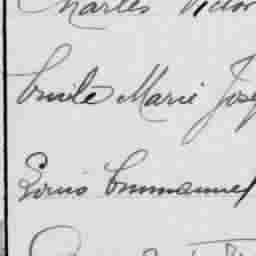 Charles Victor
Emile Marie Jose
Louis Emmanuel